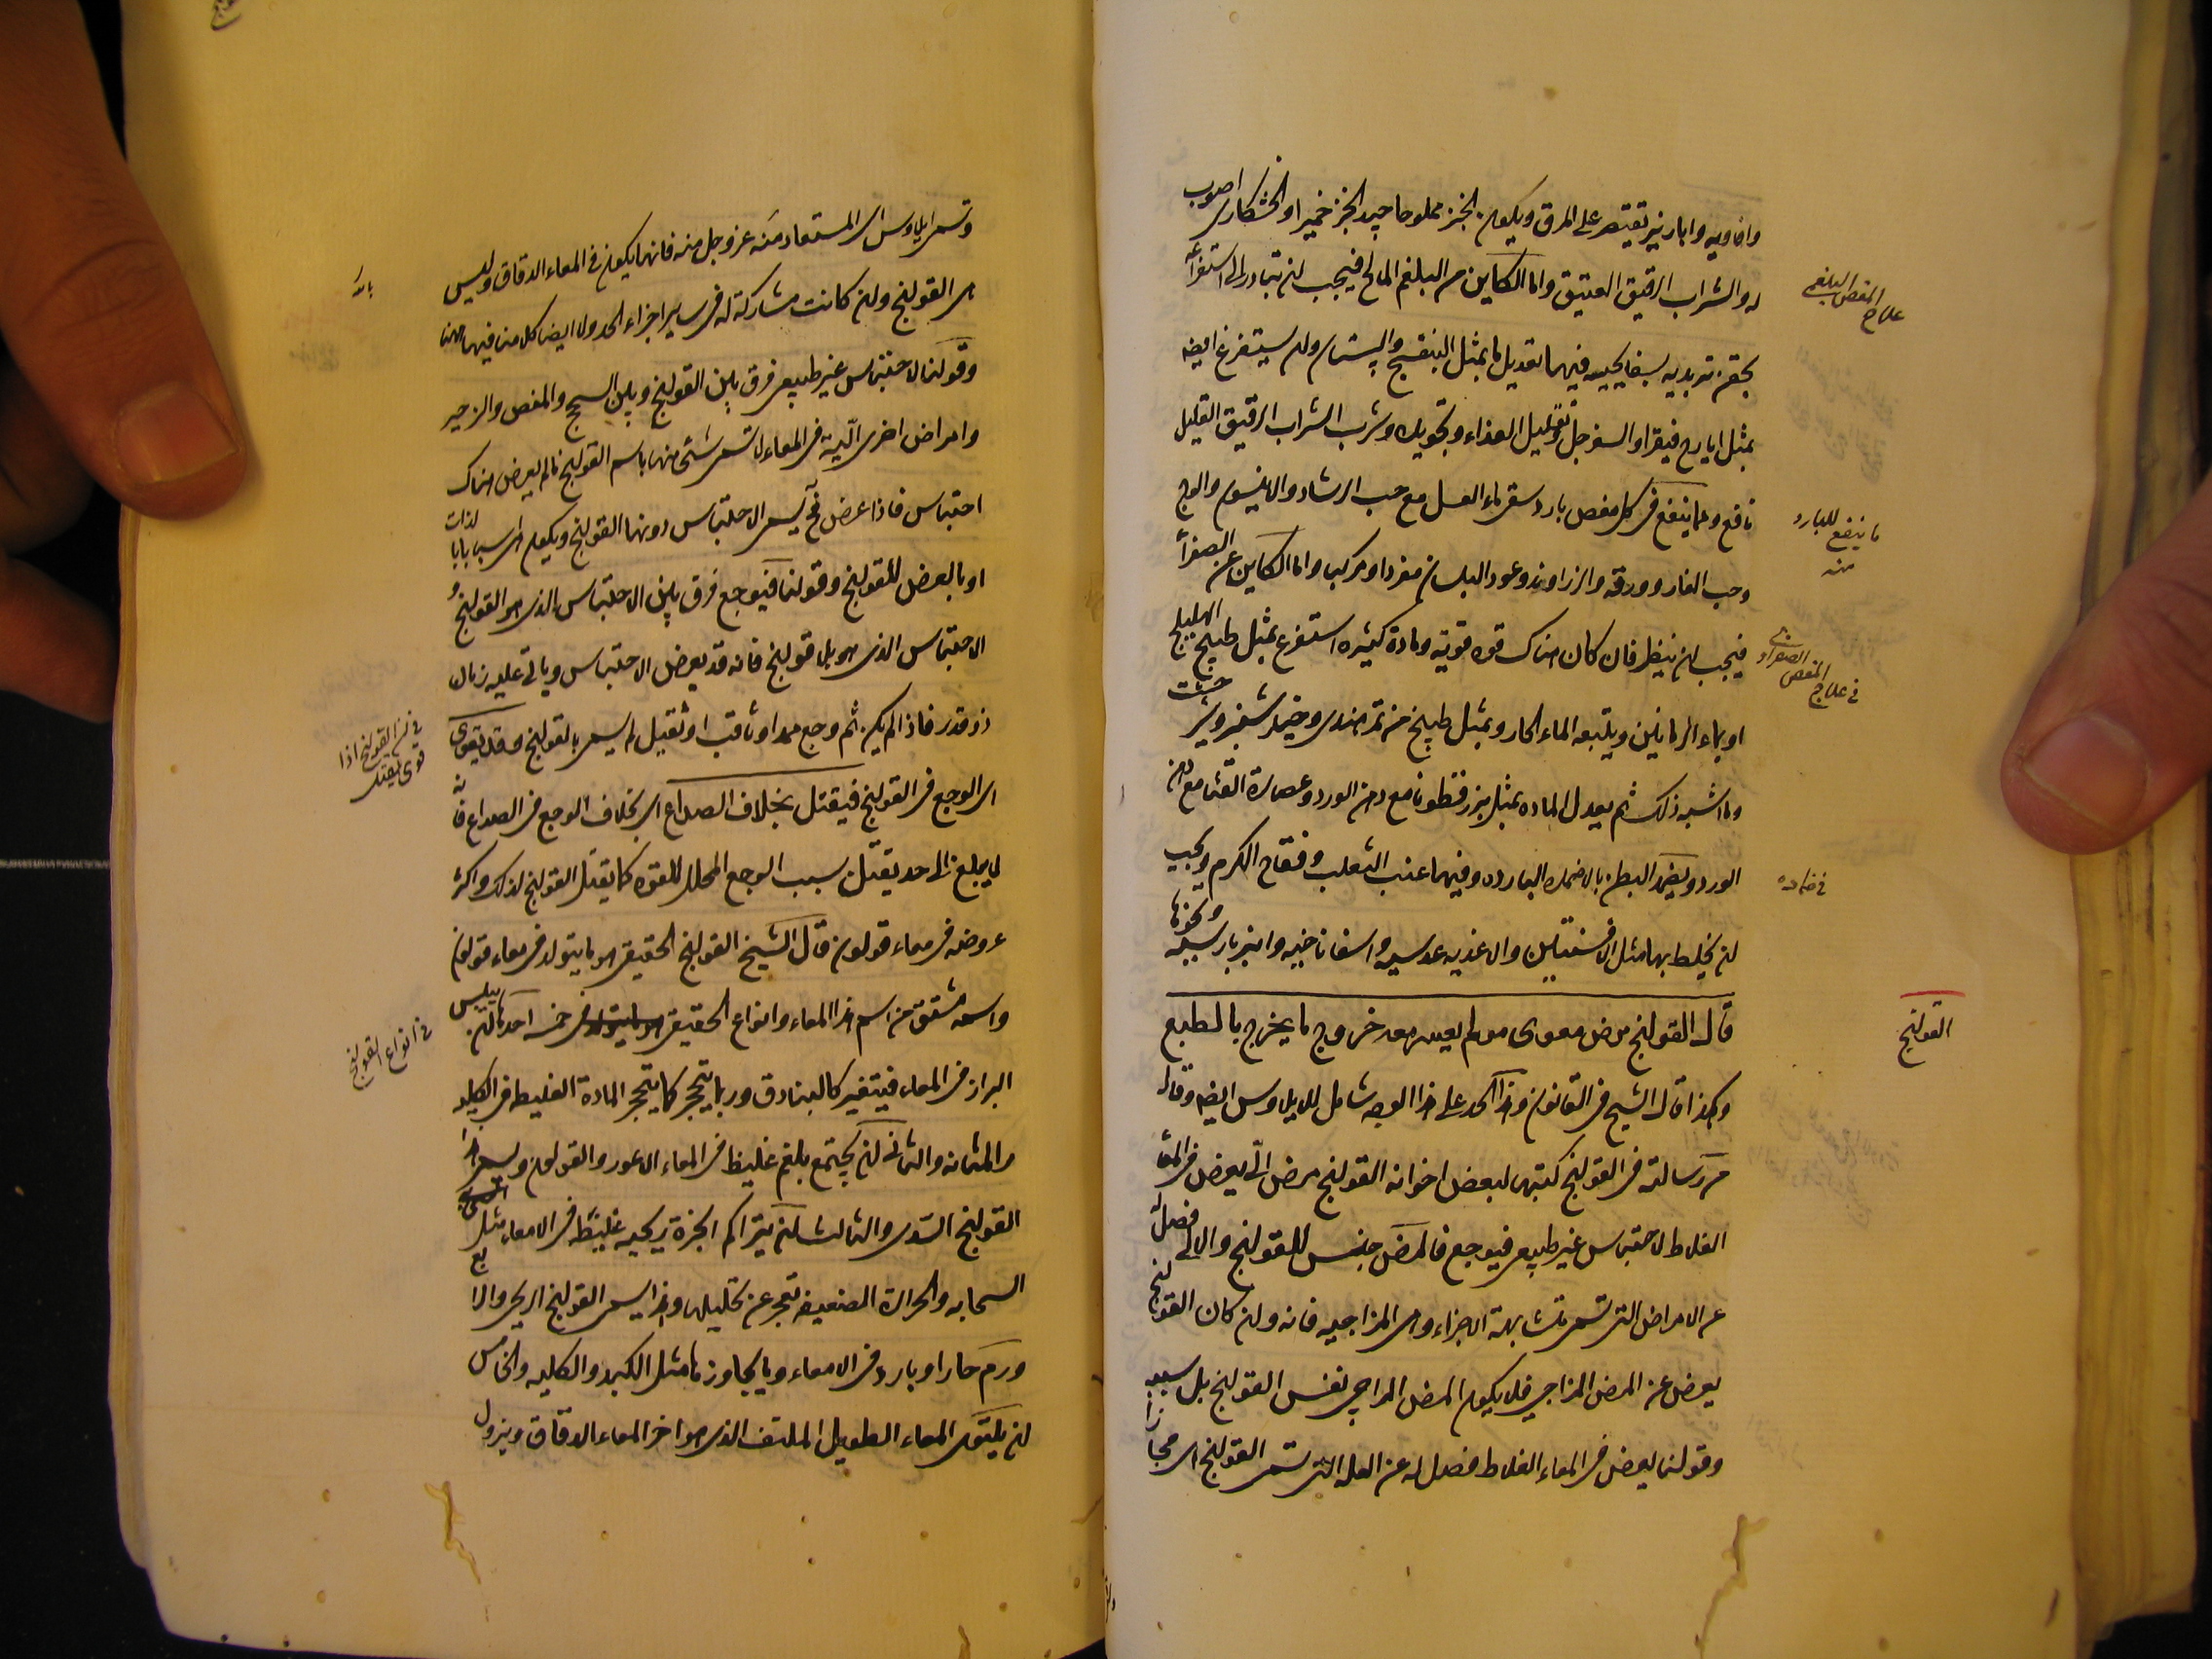 وافاويه وابازير تقتصر على المرق ويكون الخبز مملوحا جيد الخبز خميرا والخشكارى اصوب
له والشراب الرقيق العتيق واما الكاين من البلغم المالح فيجب ان تبادر الى استفراغه
بحقن تربديه بسفايجيه فيها تعديل ما بمثل البنفسج والسپستان وان يستفرغ ايضه
بمثل ايارج فيقرا والسفرجلى وتقليل الغذاء وتجويده وشرب الشراب الرقيق القليل
نافع ومما ينفع فى كل مغص بارد سقى ماء العسل مع حب الرشاد والانيسون والوج
وحب الغار وورقه والزراوند وعود البلسان مفردا ومركبا واما الكاين عن الصفرا
فيجب ان ينظر فان كان هناك قوه قويه وماده كثيره استفرغ بمثل طبيخ الهليلج
او بماء الرمانين ويتبعه الماء الحار وبمثل طبيخ من تمر هندى وخيار شنبر وشيرخشت
وما اشبه ذلك ثم يعدل الماده بمثل بزر قطونا مع دهن الورد وعصارة القثا مع دهن
الورد ويضمد البطن بالاضمده البارده وفيها عنب الثعلب وفقاح الكرم ويجب
ان يخلط بها مثل الافسنتين والاغذيه عدسيه واسفاناخيه وانبرباريسيه ونحوها
قال القولنج مرض معوى مولم يعسر معه خروج ما يخرج بالطبع
وهكذا قال الشيخ فى القانون وهذا الحد على هذا الوجه شامل للايلاوس ايضه وقال
فى رسالته فى القولنج كتبها لبعض اخوانه القولنج مرض الّى يعرض فى المعا
الغلاظ لاحتباس غير طبيعى فيوجع فالمرض جنس للقولنج والالى فصل له
عن الامراض التى تسمى متشابهة الاجزاء وهى المزاجيه فانه وان كان القولنج
يعرض عن المرض المزاجى فلا يكون المرض المزاجى نفس القولنج بل سببه
وقولنا يعرض فى المعاء الغلاظ فصل له عن العله التى تسمى القولنج اى مجازا
علاج المغص البلغمى
ما ينفع للبارد منه
فى علاج المغص الصفراوى
فى ضماده
القولنج
وتسمى ايلاوس اى المستعاذ منه عز وجل منه فانها يكون فى المعاء الدقاق وليس
هى القولنج وان كانت مشاركة له فى ساير اجزاء الحد ولا ايضا كلامنا فيها ههنا
وقولنا لاحتباس غير طبيعى فرق بين القولنج وبين السحج والمغص والزحير
وامراض اخرى اليّة فى المعاء لا تسمى شئ منها باسم القولنج ما لم يعرض هناك
احتباس فاذا عرض يسمى الاحتباس دونها القولنج ويكون هى اسبابا بالذات
او بالعرض للقولنج وقولنا فيوجع فرق بين الاحتباس الذى هو القولنج و
الاحتباس الذى هو بلا قولنج فانه قد يعرض الاحتباس وياتى عليه زمان
ذو قدر فاذا لم يكن ثم وجع ممدا وثاقب او ثقيل لم يسمى بالقولنج وقد يقوى
اى الوجع فى القولنج فيقتل بخلاف الصداع اى بخلاف الوجع فى الصداع فانه
لا يبلغ الى حد يقتل بسبب الوجع المحلل للقوه كما يقتل القولنج لذلك واكثر
عروضه فى معاء قولون قال الشيخ القولنج الحقيقى هو ما يتولد فى معاء قولون
واسمه مشتق من اسم هذا المعاء وانواع الحقيقى خمسه احدها ان ييبس
البراز فى المعاء فيتغير كالبنادق وربما يتحجر كما يتحجر المادة الغليظ فى الكليه
والمثانه والثانى ان يجتمع بلغم غليظ فى المعاء الاعور والقولون ويسمى هذا
القولنج السّدى والثالث ان يتراكم ابخرة ريحيه غليظه فى الامعاء مثل
السحابه والحرارة الضعيفه تعجز عن تحليلها وهذا يسمى القولنج الريحى والرابع
ورم حار او بارد فى الامعاء وما يجاوزها مثل الكبد والكليه والخامس
ان يلتوى المعاء الطويل الملتف الذى هو اخر المعاء الدقاق ويزول
فى ان القولنج اذا قوى يقتل
فى انواع القولنج